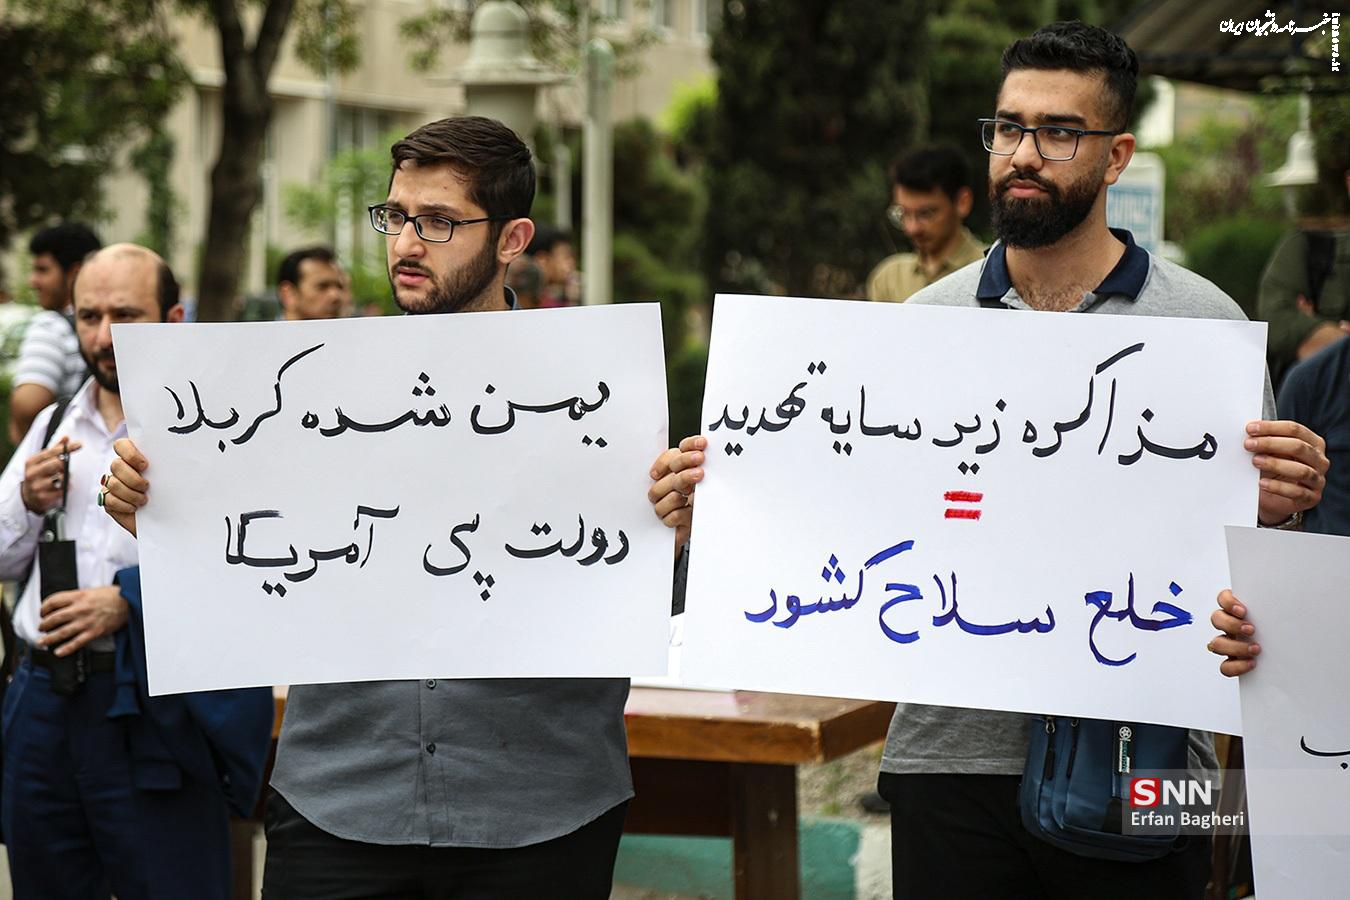 خبرنامه دانشجویان ایران
مذاکره زیر سایه تهدید
=
خلع سلاح کشور
یمن شده کربلا
دولت پی آمریکا
ب
SNN
Erfan Bagheri